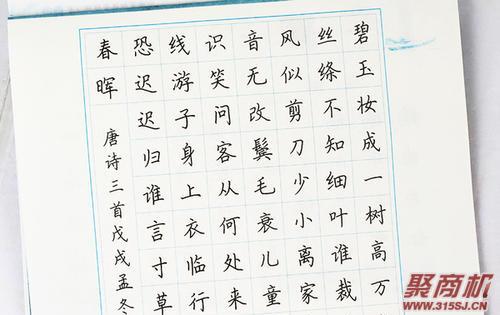 碧玉妆成一树高万
丝绦不知细叶谁裁
风似剪刀少小离家
音无改鬓毛衰儿童
识笑问客从何处来
线游子身上衣临行
恐迟迟归谁言寸草
春晖
唐诗三首戊戌孟冬
聚商机
WWW.315SJ.CN